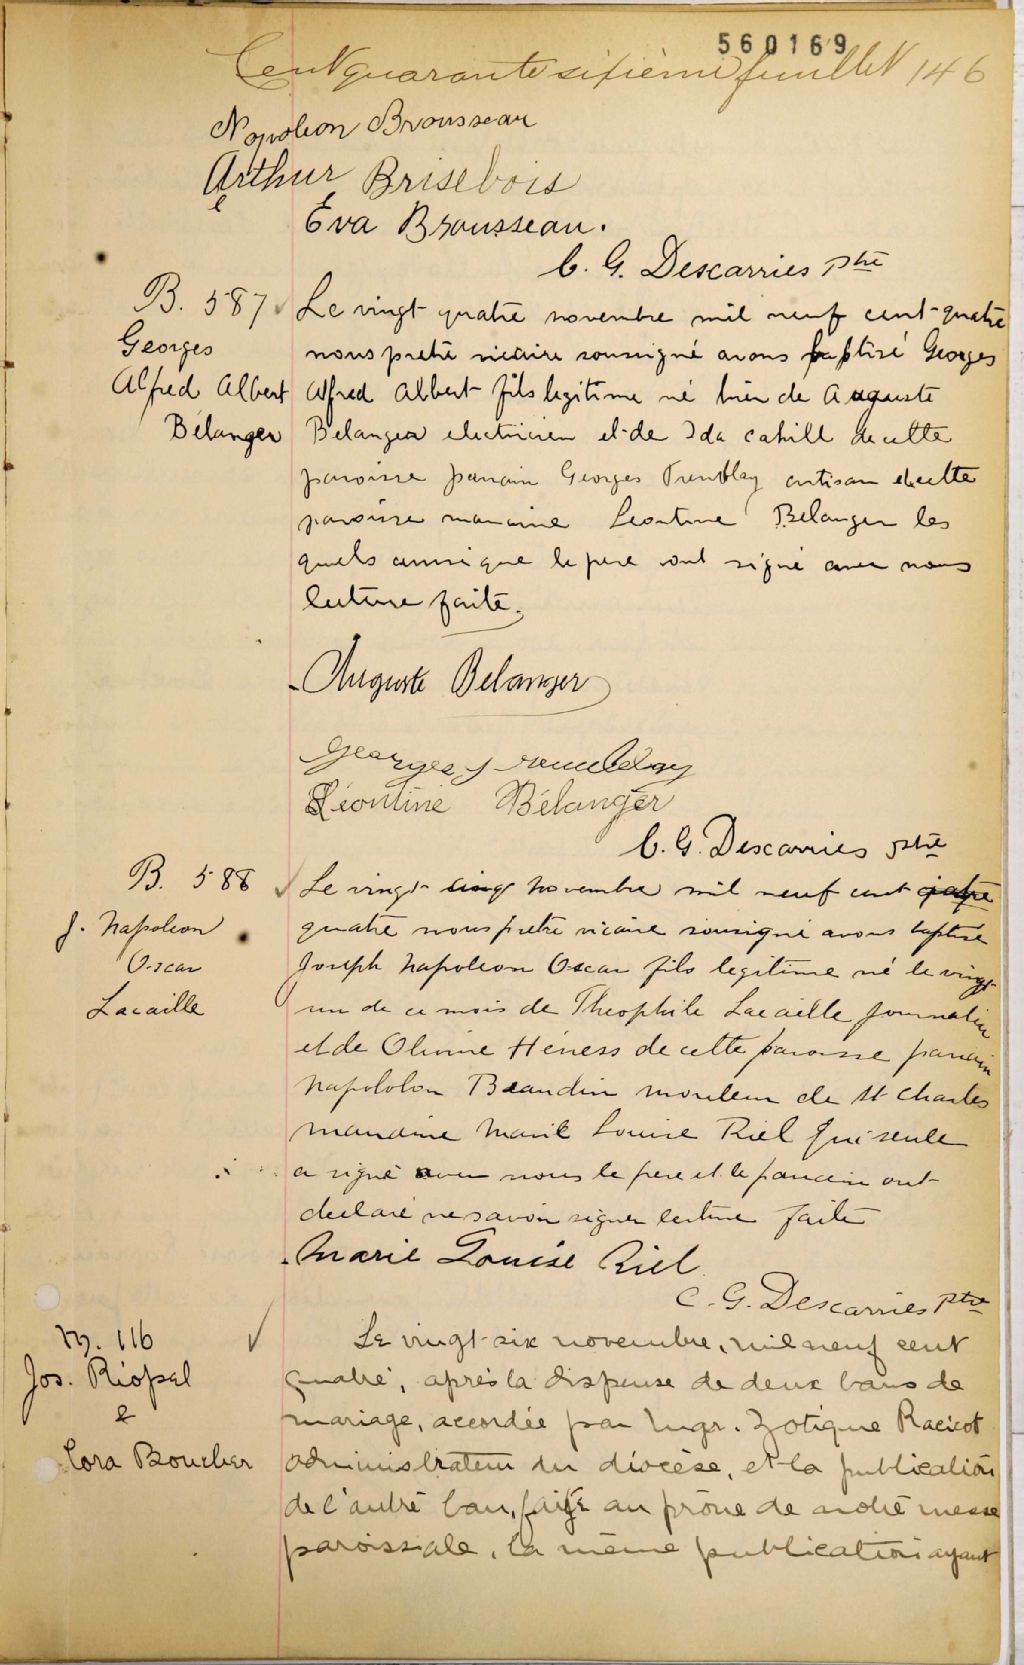 560169
Cent quarante sixième feuillet 146
Napoleon Brousseau
Arthur Brisebois
Eva Brousseau.
C. G. Descarries ptre
B. 587
Georges
Alfred Albert
Bélanger
Le vingt quatre novembre mil neuf cent quatre
nous pretre vicaire soussigné avons baptisé Georges
Alfred Albert fils legitime né hier de Auguste
Belanger electricien et de Ida Cahill de cette
paroisse parrain Georges Tremblay artisan de cette
paroisse marraine Leontine Bélanger les
quels ainsi que le pere ont signé avec nous
lecture faite.
Auguste Belanger
Georges Tremblay
Léontine Bélanger
C. G. Descarries ptre
B. 588
J. Napoleon
Oscar
Lacaille
Le vingt cinq novembre mil neuf cent quatre
quatre nous pretre vicaire soussigné avons baptisé
Joseph Napoleon Oscar fils legitime né le vingt
un de ce mois de Theophile Lacaille journalier
et de Olivine Héness de cette paroisse parrain
Napololon Beaudin mouleur de St Charles
marraine Marie Louise Riel qui seule
a signé avec nous le pere et le parrain ont
declaré ne savoir signer lecture faite
Marie Louise Riel
C. G. Descarries ptre
M. 116
Jos. Riopel
&
Cora Boucher
Le vingt-six novembre, mil neuf cent
quatre, après la dispense de deux bans de
mariage, accordée par Mgr. Zotique Racicot
administrateur du diocèse, et la publication
de l'autre ban, faite au prône de notre messe
paroissiale, la même publication ayant